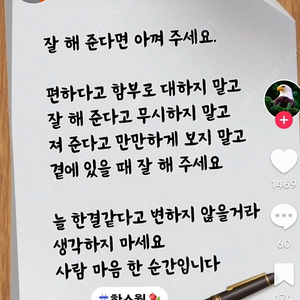 잘 해 준다면 아껴 주세요.
편하다고 함부로 대하지 말고
잘 해 준다고 무시하지 말고
져 준다고 만만하게 보지 말고
곁에 있을 때 잘 해 주세요
늘 한결같다고 변하지 않을거라
생각하지 마세요
사람 마음 한 순간입니다
1469
60